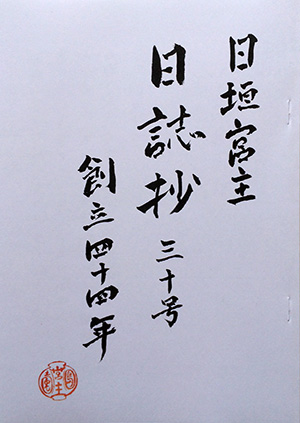 日垣宮主
日誌抄 三十号
創立四十四年